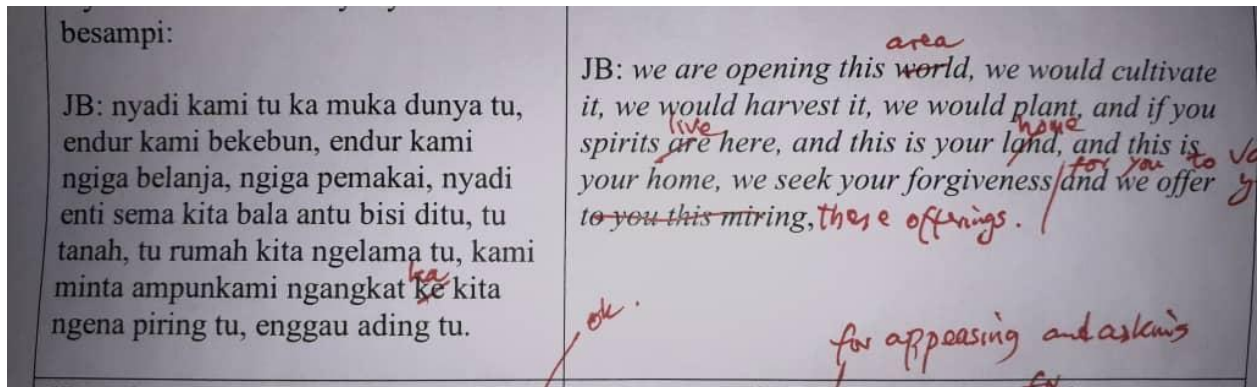 besampi:
JB: nyadi kami tu ka muka dunya tu,
endur kami bekebun, endur kami
ngiga belanja, ngiga pemakai, nyadi
enti sema kita bala antu bisi ditu, tu
tanah, tu rumah kita ngelama tu, kami
ka
minta ampunkami ngangkat ke kita
ngena piring tu, enggau ading tu.
ok.
area
JB: we are opening this world, we would cultivate
it, we would harvest it, we would plant, and if you
live home
spirits are here, and this is your land, and this is
for you to
your home, we seek your forgiveness and we offer
to you this miring, these offerings.
for appeasing and asking